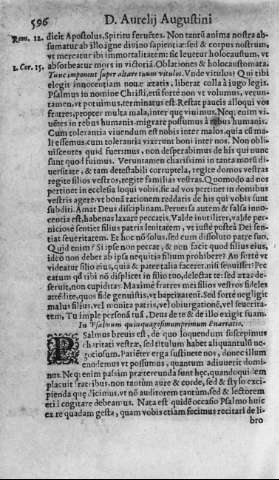 596 D. Aurelij Augustini
Rom. 12. dicit Apostolus. Spiritu feruētes. Non tantū anima nostra ab-
sumatur ab illo igne diuino sapientiæ: sed & corpus nostrum,
vt mereatur ibi immortalitatem: sic leuetur holocaustum, vt
1. Cor. 15. absorbeatur mors in victoriā. Oblationes & holocaustomata.
Tunc imponent super altare tuum vitulos. Vnde vitulos? Qui tibi
elegit innocentiam nouæ ætatis, liberat colla à iugo legis.
Psalmus in nomine Christi, etsi fortè non vt voluimus, verun-
tamen, vt potuimus, terminatus est. Restat paucis alloqui vos
fratres, propter mala, inter quæ viuimus. Neq; enim vi-
uētes in rebus humanis
Cum tolerantia viuendum est nobis inter malos, quia cū ma-
li essemus, cum tolerantia vixerunt boni inter nos. Non obli-
uiscentes quid fuerimus, non desperabimus de his qui nunc
sunt quod fuimus. Veruntamen charissimi in tanta morū di-
uersitate, & tam detestabili corruptela, regite domos vestras
regite filios vestros, regite familias vestras. Quomodo ad nos
pertinet in ecclesia loqui vobis, sic ad vos pertinet in domibus
vestris agere: vt bonā rationem reddatis de his qui vobis sunt
subditi. Amat Deus disciplinam. Peruersa autem & falsa inno-
centia est, habenas laxare peccatis. Valde inutiliter, valde per-
niciosè sentiet filius patris lenitatem, vt
tiat seueritatem. Et hoc nō solus, sed cum dissoluto patre suo.
Quid enim? Si ipse non peccat, & non facit quod filius eius,
ideo non debet ab ipsa nequitia filium prohibere? An fortè vi-
deatur filio eius, quia & pater talia faceret, nisi senuisset? Pec-
catum
seruit, non cupiditas. Maximè fratres mei filios vestros fideles
attēdite, quos sic genuistis, vt baptizarentur. Sed fortè negligit
malus filius, vel monita patris, vel obiurgationē, vel seuerita-
tem. Tu imple personā tuā, Deus de te & de illo exigit suam.
In Psalmum quinquagesimumprimum Enarratio.
PSalmus breuis est, de quo loquendum suscepimus
charitati vestræ, sed titulum habet aliquantulū ne-
gociosum. Patiēter ergo sustinete nos, donec illum
enodemus vt possumus, quantum adiuuerit domi-
nus. Neq; enim passim prætereunda sunt hęc, quandoquidem
placuit fratribus non tantùm aure & corde, sed & stylo exci-
pienda quę dicimus, vt nō auditorem tantùm, sed & lectorem
etiā cogitare debeamus. Nata est quidē occasio Psalmo huic
ex re quadam gesta, quam vobis etiam fecimus recitari de li-
bro